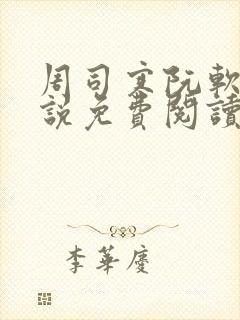 周司寒阮軟
說免費閱讀
李華慶